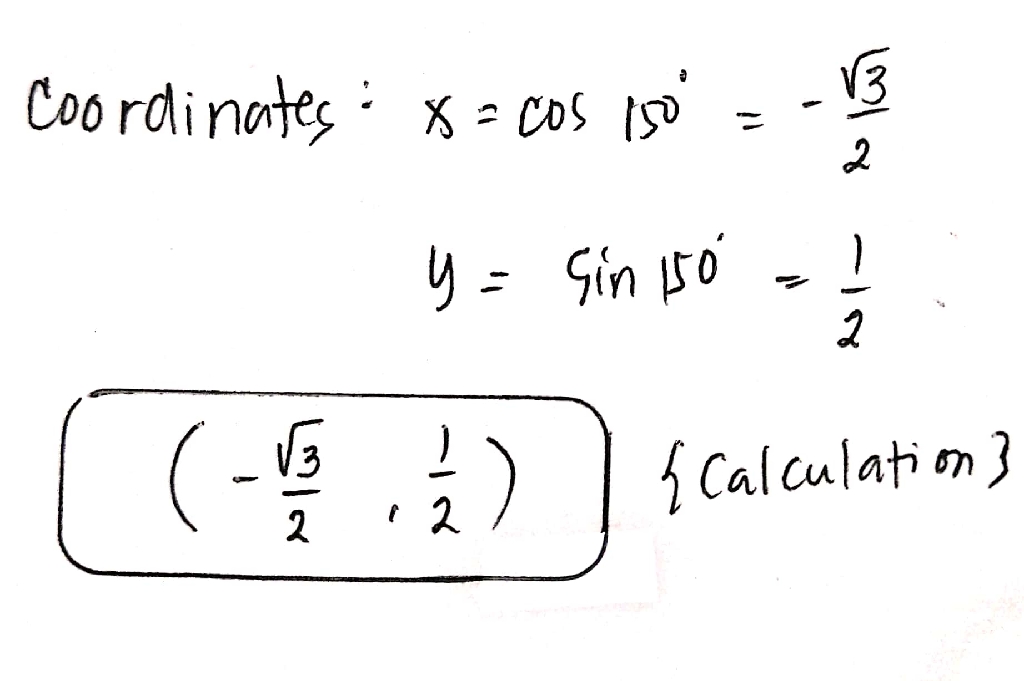 Coordinates : x = cos 150° = - √3/2
y = Sin 150° = 1/2
( - √3/2 , 1/2 ) {Calculation}